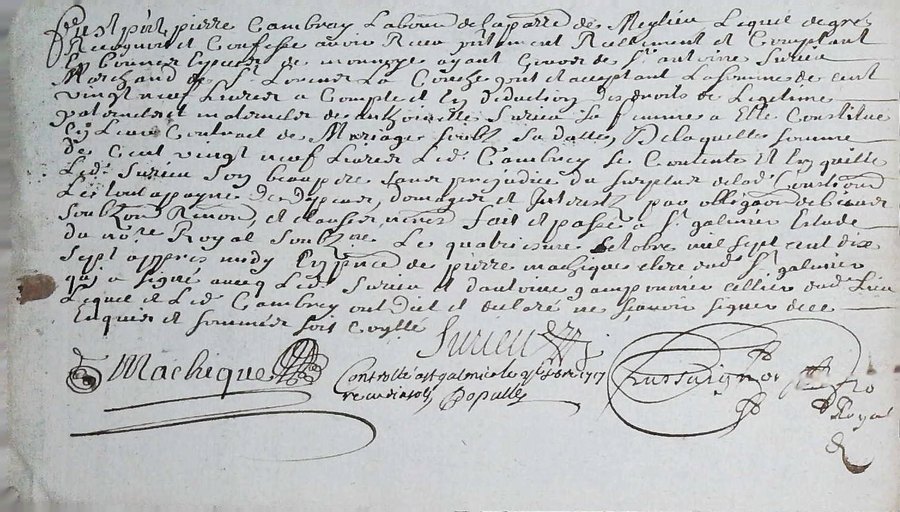 Fust pnt pierre Cambray Laboureur de la parre de Meylieu Lequel de gre
Recognoit et Confesse avoir Receu pntement Reellement et Comptant
En bonnes Especes de monnoye ayant Cours de Sr antoine Surieu
Marchand de St pnt et acceptant La somme de cent
vingt neuf Livres a Compte et En deduction des droits de Legitime
paternels et maternels de anthoinette Surieu Sa femme a Elle Constitue
En Leur Contrat de Mariage Soubz Sa datte, De laquelle somme
de Cent vingt neuf Livres Led. Cambray Se Contente Et En quitte
Led. Surieu Son beaupere Sans prejudice du Surplus de lad. Constitution
Le tout a payne de depens, domages et Interets, par obligation de biens
Soubzmon Renon, et clauses Fait et passe a St galmier Estude
du nore Royal Soubzne Le quatriesme octobre mil sept cent dix
Sept appres midy En pnce de pierre machiques clerc dud. St galmier
qui a signé avecq Led. Surieu Et d'antoine cellier dud. Lieu
Lequel et Led. Cambray ont dit et declaré ne scavoir signer de ce
Enquis et sommés sois
Machique Surieu
Controllé a st galmier le 9e 8bre 1717
receu
Royal